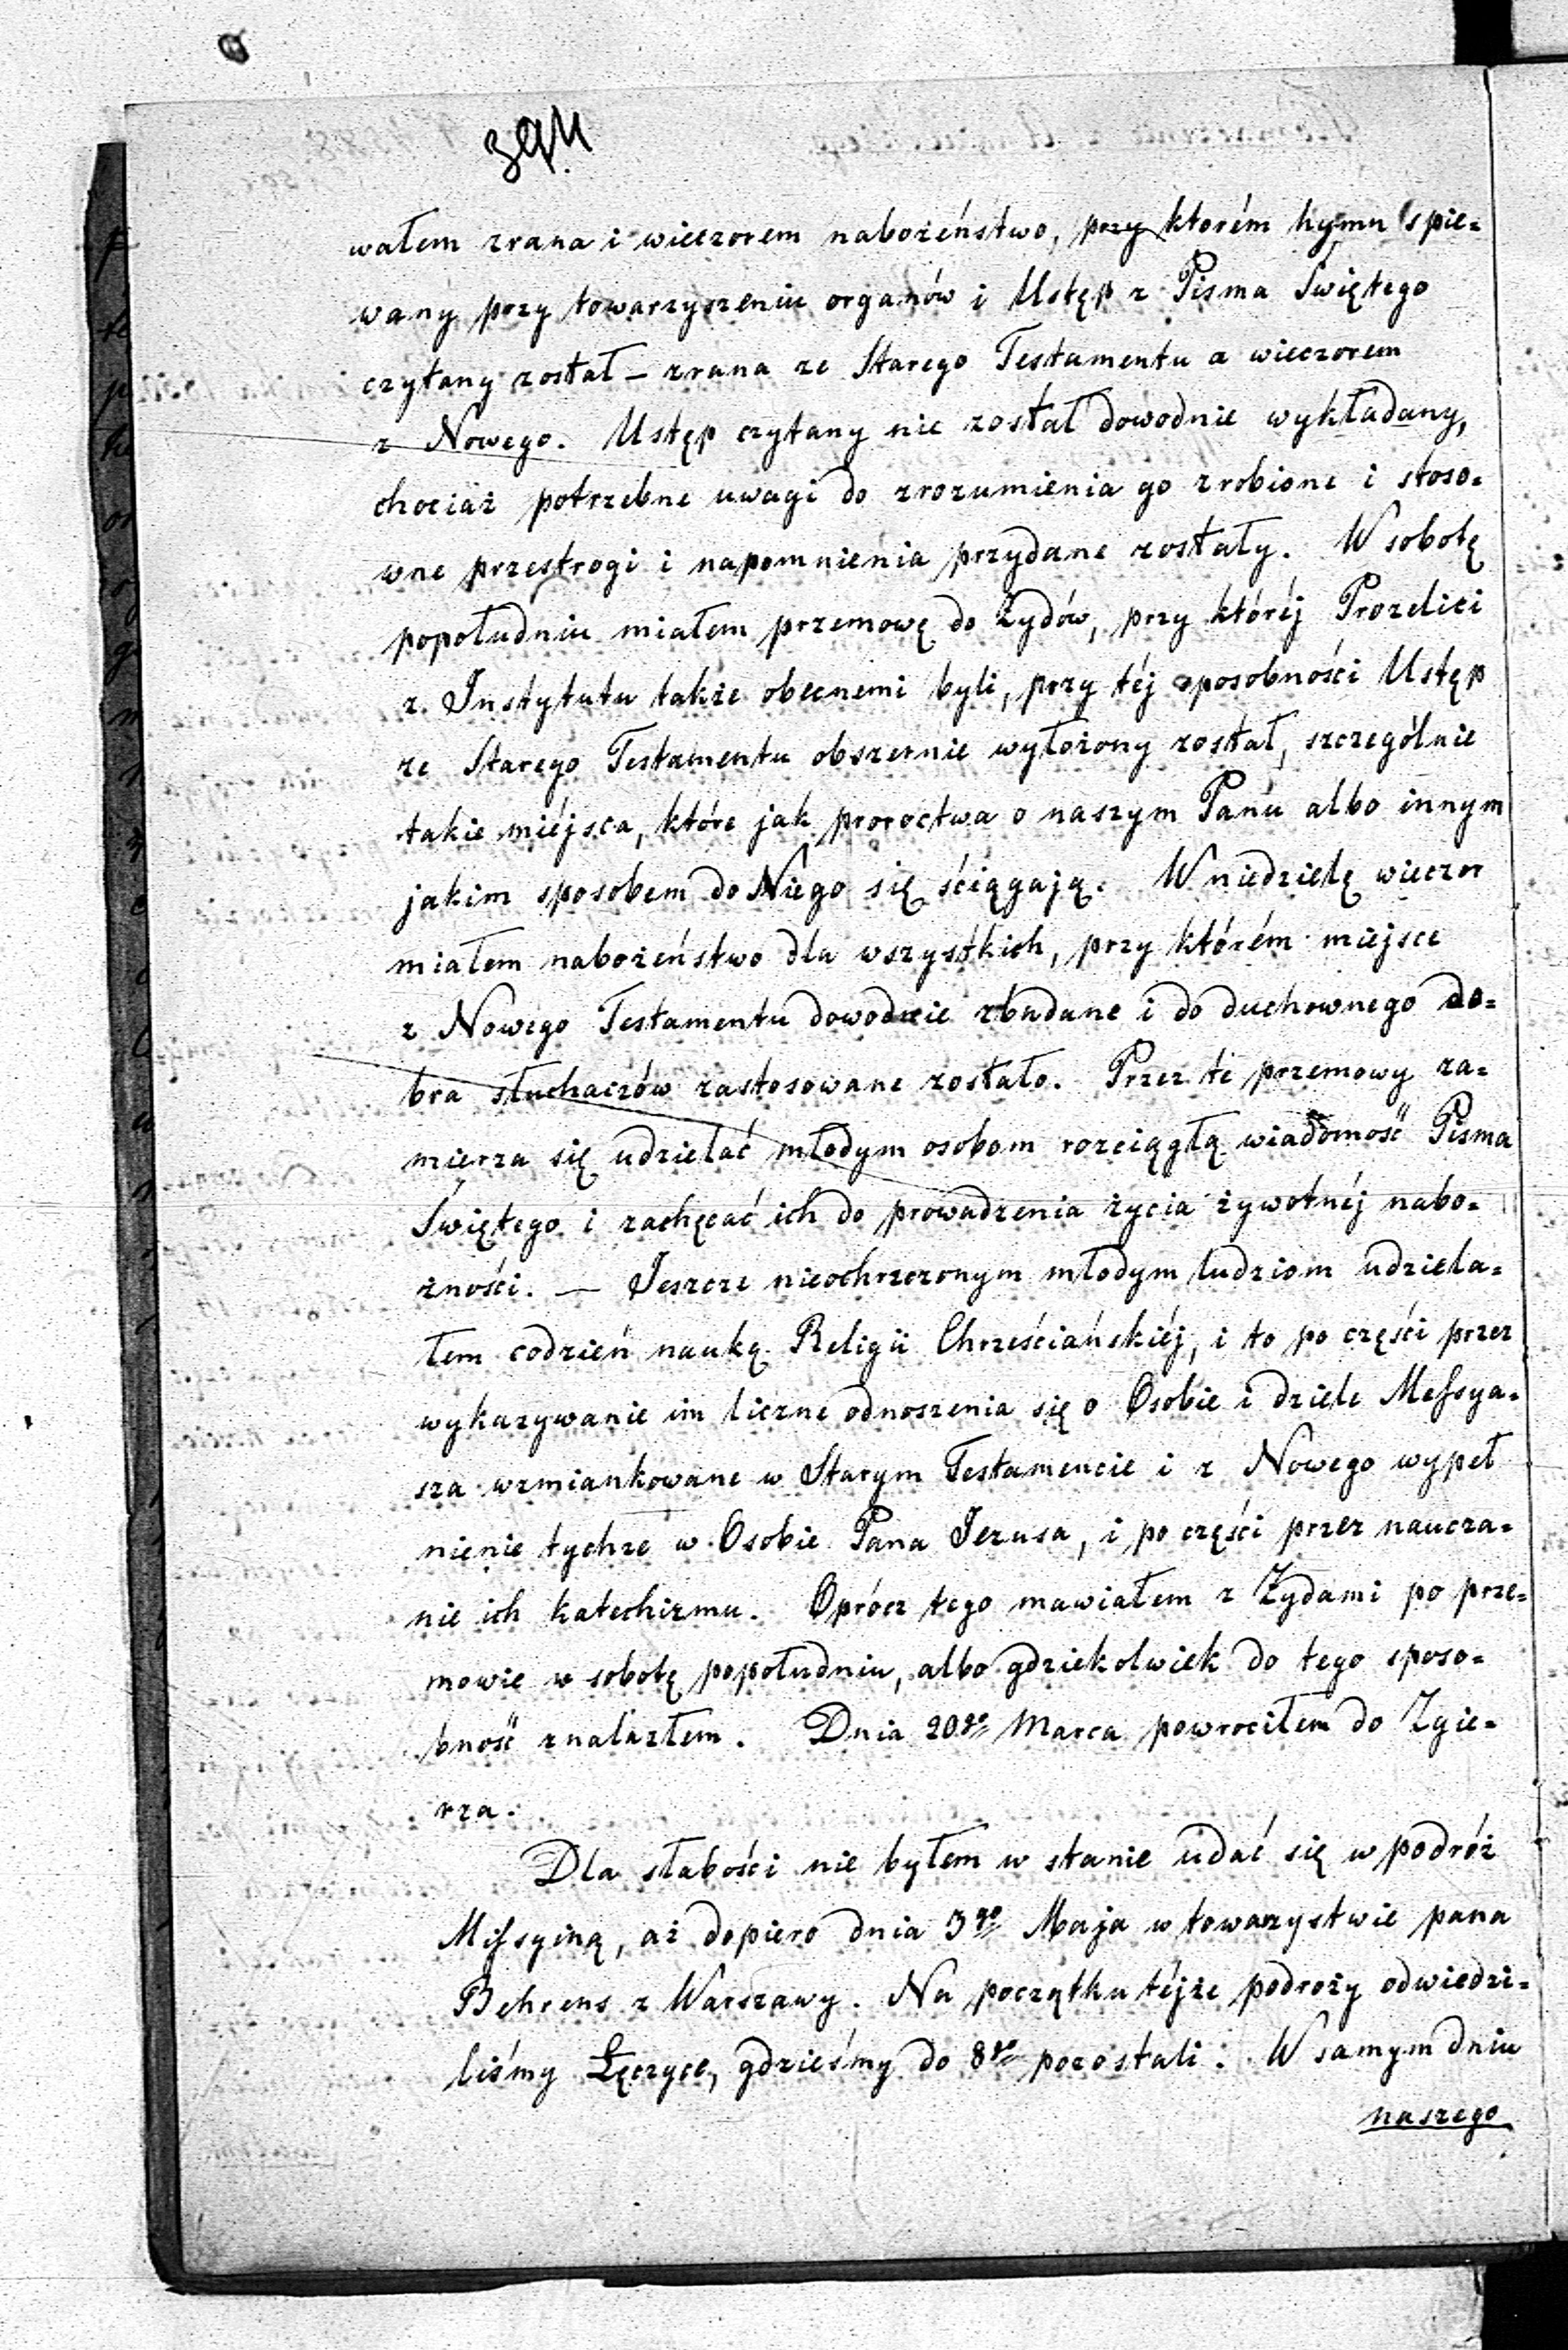 wałem zrana i wieczorem nabożeństwo, przy ktorém hymn spie-
wany przy towarzyszeniu organów i Ustęp z Pisma Świętego
czytany został – zrana ze Starego Testamentu a wieczorem
z Nowego. Ustęp czytany nie został dowodnie wykładany,
chociaż potrzebne uwagi do zrozumienia go zrobione i stoso-
wne przestrogi i napomnienia przydane zostały. W sobotę
popołudniu miałem przemowę do Żydów, przy któréj Prozelici
z Instytutu także obecnemi byli, przy téj sposobności Ustęp
ze Starego Testamentu obszernie wyłożony został, szczególnie
takie miéjsca, które jak proroctwa o naszym Panu albo innym
jakim sposobem do Niego się ściągają. W niedzielę wieczor
miałem nabożeństwo dla wszystkich, przy którém miejsce
z Nowego Testamentu dowodnie zbadane i do duchownego do-
bra słuchaczów zastosowane zostało. Przez te przemowy za-
mierza się udzielać młodym osobom rozciągłą wiadomość Pisma
Świętego i zachęcać ich do prowadzenia życia żywotnéj nabo-
żności. — Jeszcze nieochrzczonym młodym ludziom udziela-
łem codzień naukę Religii Chrześciańskiéj, i to po części przez
wykazywanie im liczne odnoszenia się o Osobie i dziele Messya-
sza wzmiankowane w Starym Testamencie i z Nowego wypeł
nienie tychze w Osobie Pana Jezusa, i po części przez naucza-
nie ich katechizmu. Oprócz tego mawiałem z Żydami po prze-
mowie w sobotę popołudniu, albo gdziekolwiek do tego sposo-
bność znalazłem. Dnia 20go Marca powrociłem do Zgie-
rza.
Dla słabości nie byłem w stanie udać się w podróż
Missyiną, aż dopiero dnia 3go Maja w towarzystwie pana
Behrens z Warszawy. Na początku téjże podroży odwiedzi-
liśmy Łęczycę, gdzieśmy do 8go pozostali. W samym dniu
naszego